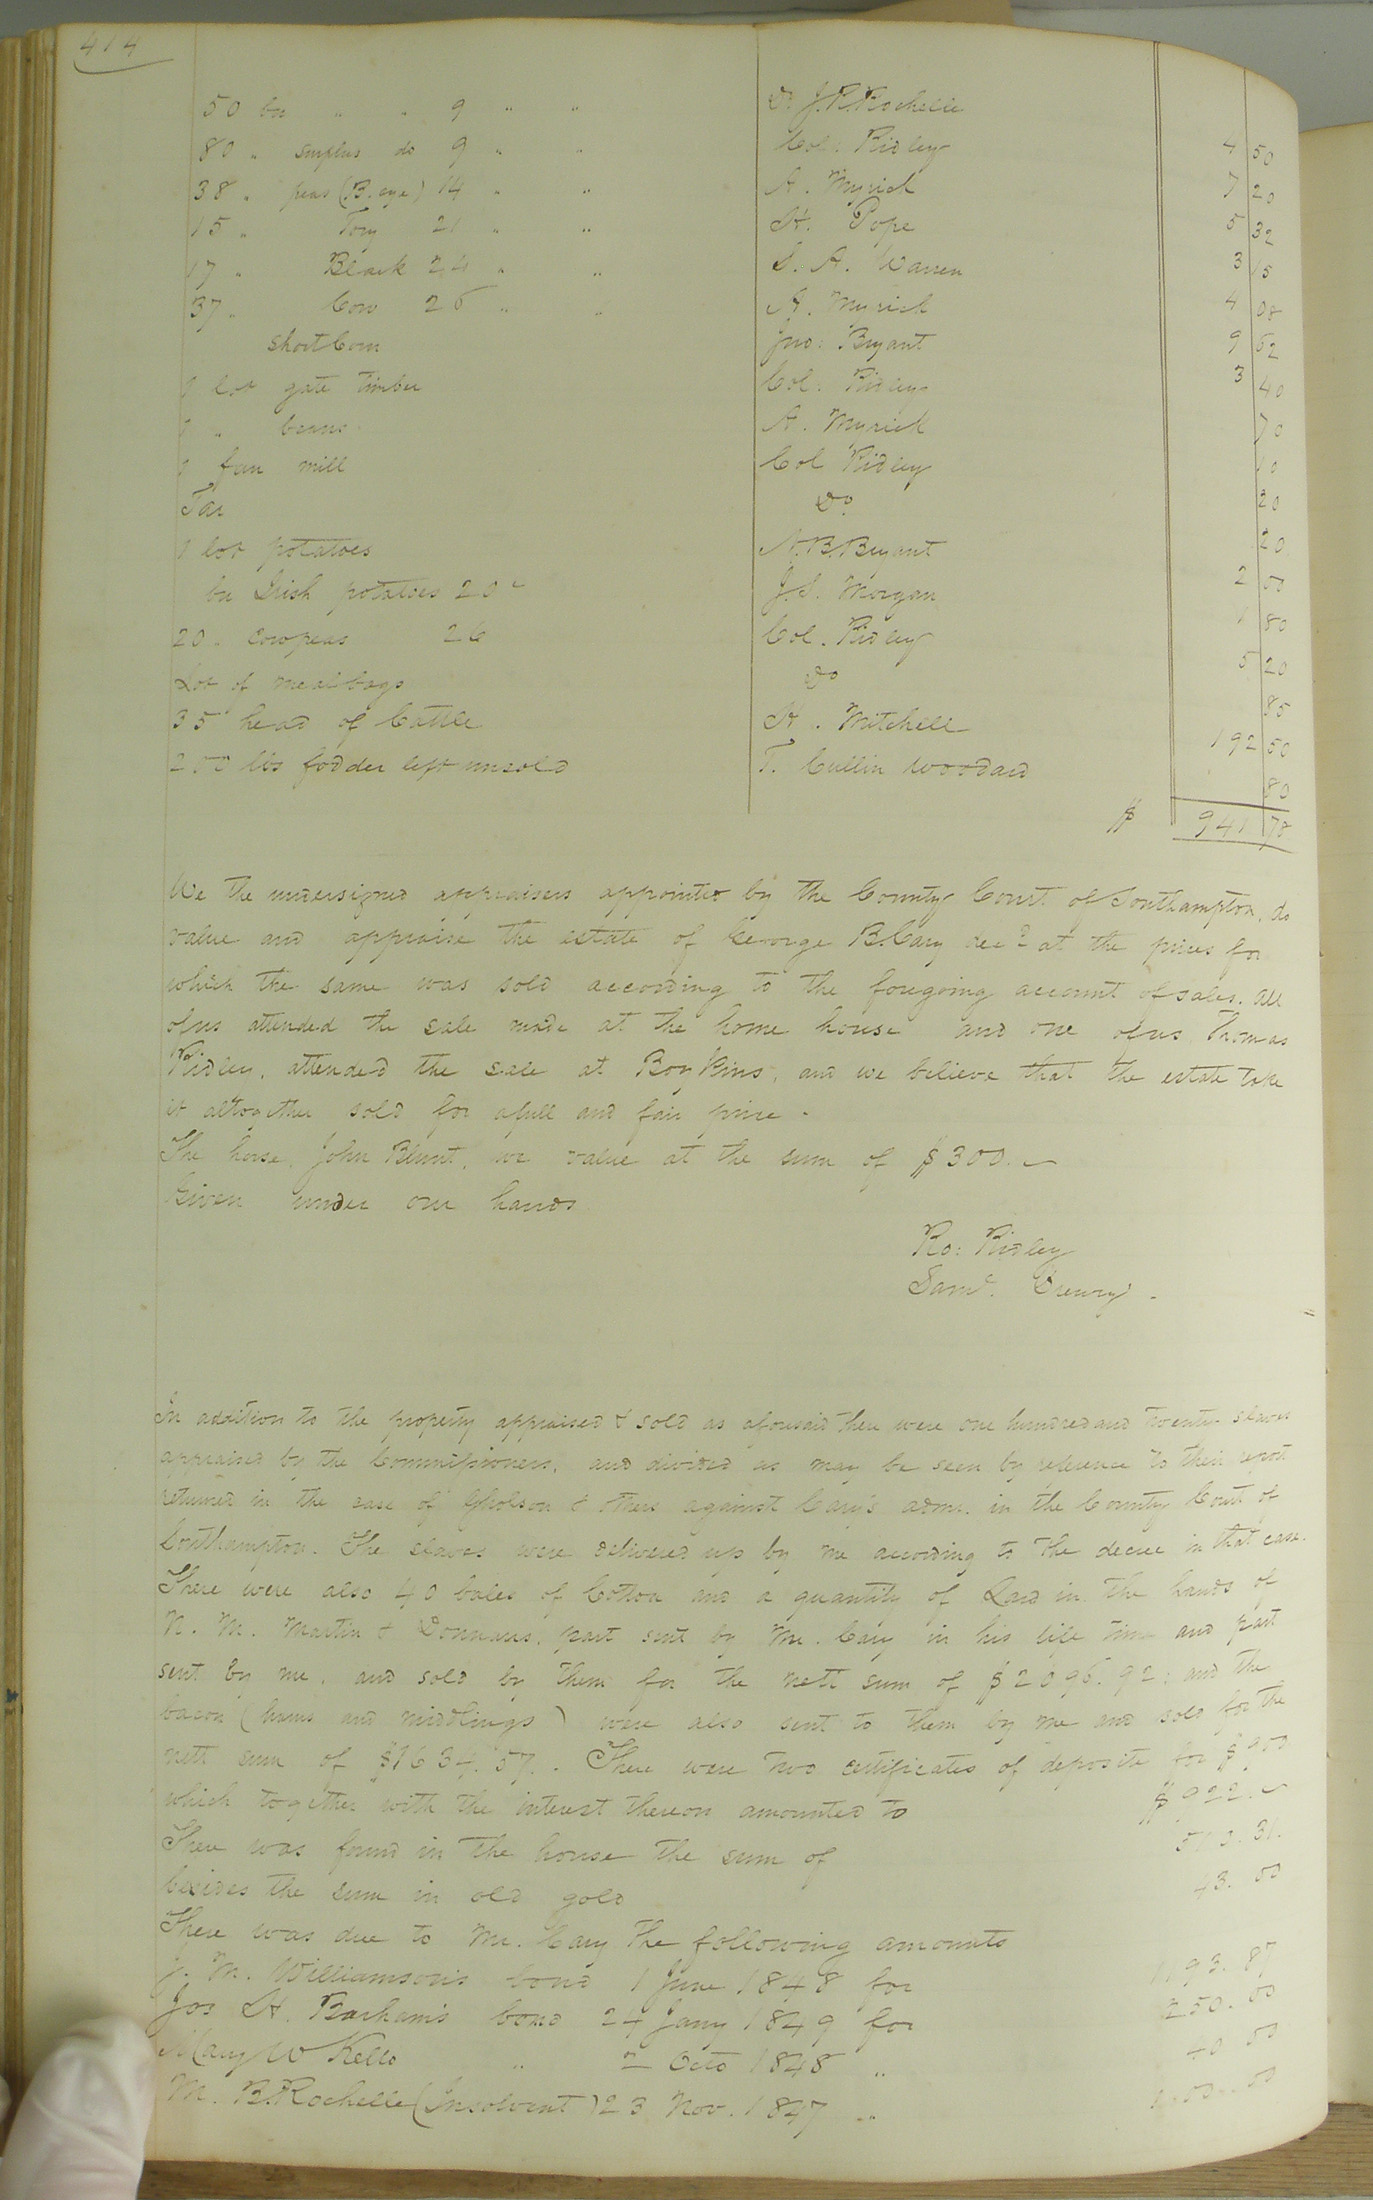 414
50 bu " " 9 " " Do J.R. Rochelle 4 50
80 " surplus do 9 " " Col. Ridley 7 20
38 " peas (B. eye) 14 " " A. Myrick 5 32
15 " Tory 21 " " H. Pope 3 15
17 " Black 24 " " S. A. Warren 4 08
37 " Cow 26 " " A. Myrick 9 62
Short Corn Jno: Bryant 3 40
1 lot gate timber Col. Ridley 70
1 " beans A. Myrick 10
1 fan mill Col Ridley 20
Tar Do 20
1 lot potatoes N.B. Bryant 2 00
bu Irish potatoes 20c J.S. Morgan 1 80
20 " Cow peas 26 Col. Ridley 5 20
Lot of meal bags Do 85
35 head of Cattle H. Mitchell 192 50
200 lbs fodder left unsold T. Cullin Woodard 80
$ 941 78
We the undersigned appraisers appointed by the County Court of Southampton, do
value and appraise the estate of George B. Cary decd at the prices for
which the same was sold according to the foregoing account of sales. All
of us attended the sale made at the home house and one of us Thomas
Ridley, attended the sale at Boykins, and we believe that the estate take
it altogether sold for a full and fair price.
The horse, John Blunt, we value at the sum of $300.
Given under our hands
Ro: Ridley
Saml. Drewry.
In addition to the property appraised & sold as aforesaid there were one hundred and twenty slaves
appraised by the Commissioners, and divided as may be seen by reference to their report
returned in the case of Gholson & others against Cary's admr. in the County Court of
Southampton. The slaves were delivered up by me according to the decree in that case.
There were also 40 bales of Cotton and a quantity of Lard in the hands of
N. M. Martin & Donnans, part sent by Mr. Cary in his life time and part
sent by me, and sold by them for the nett sum of $2096.92; and the
bacon (hams and middlings) were also sent to them by me and sold for the
nett sum of $1634.57. There were two certificates of deposite for $900
which together with the interest thereon amounted to $922.
There was found in the house the sum of 513.31.
besides the sum in old gold 43.00
There was due to Mr. Cary the following amounts
J. M. Williamson's bond 1 June 1848 for 1193.87
Jos H. Barham's bond 24 Jany 1849 for 250.00
Mary W Kello " 2 Octo 1848 " 40 00
M. B. Rochelle (Insolvent) 23 Nov. 1847 "